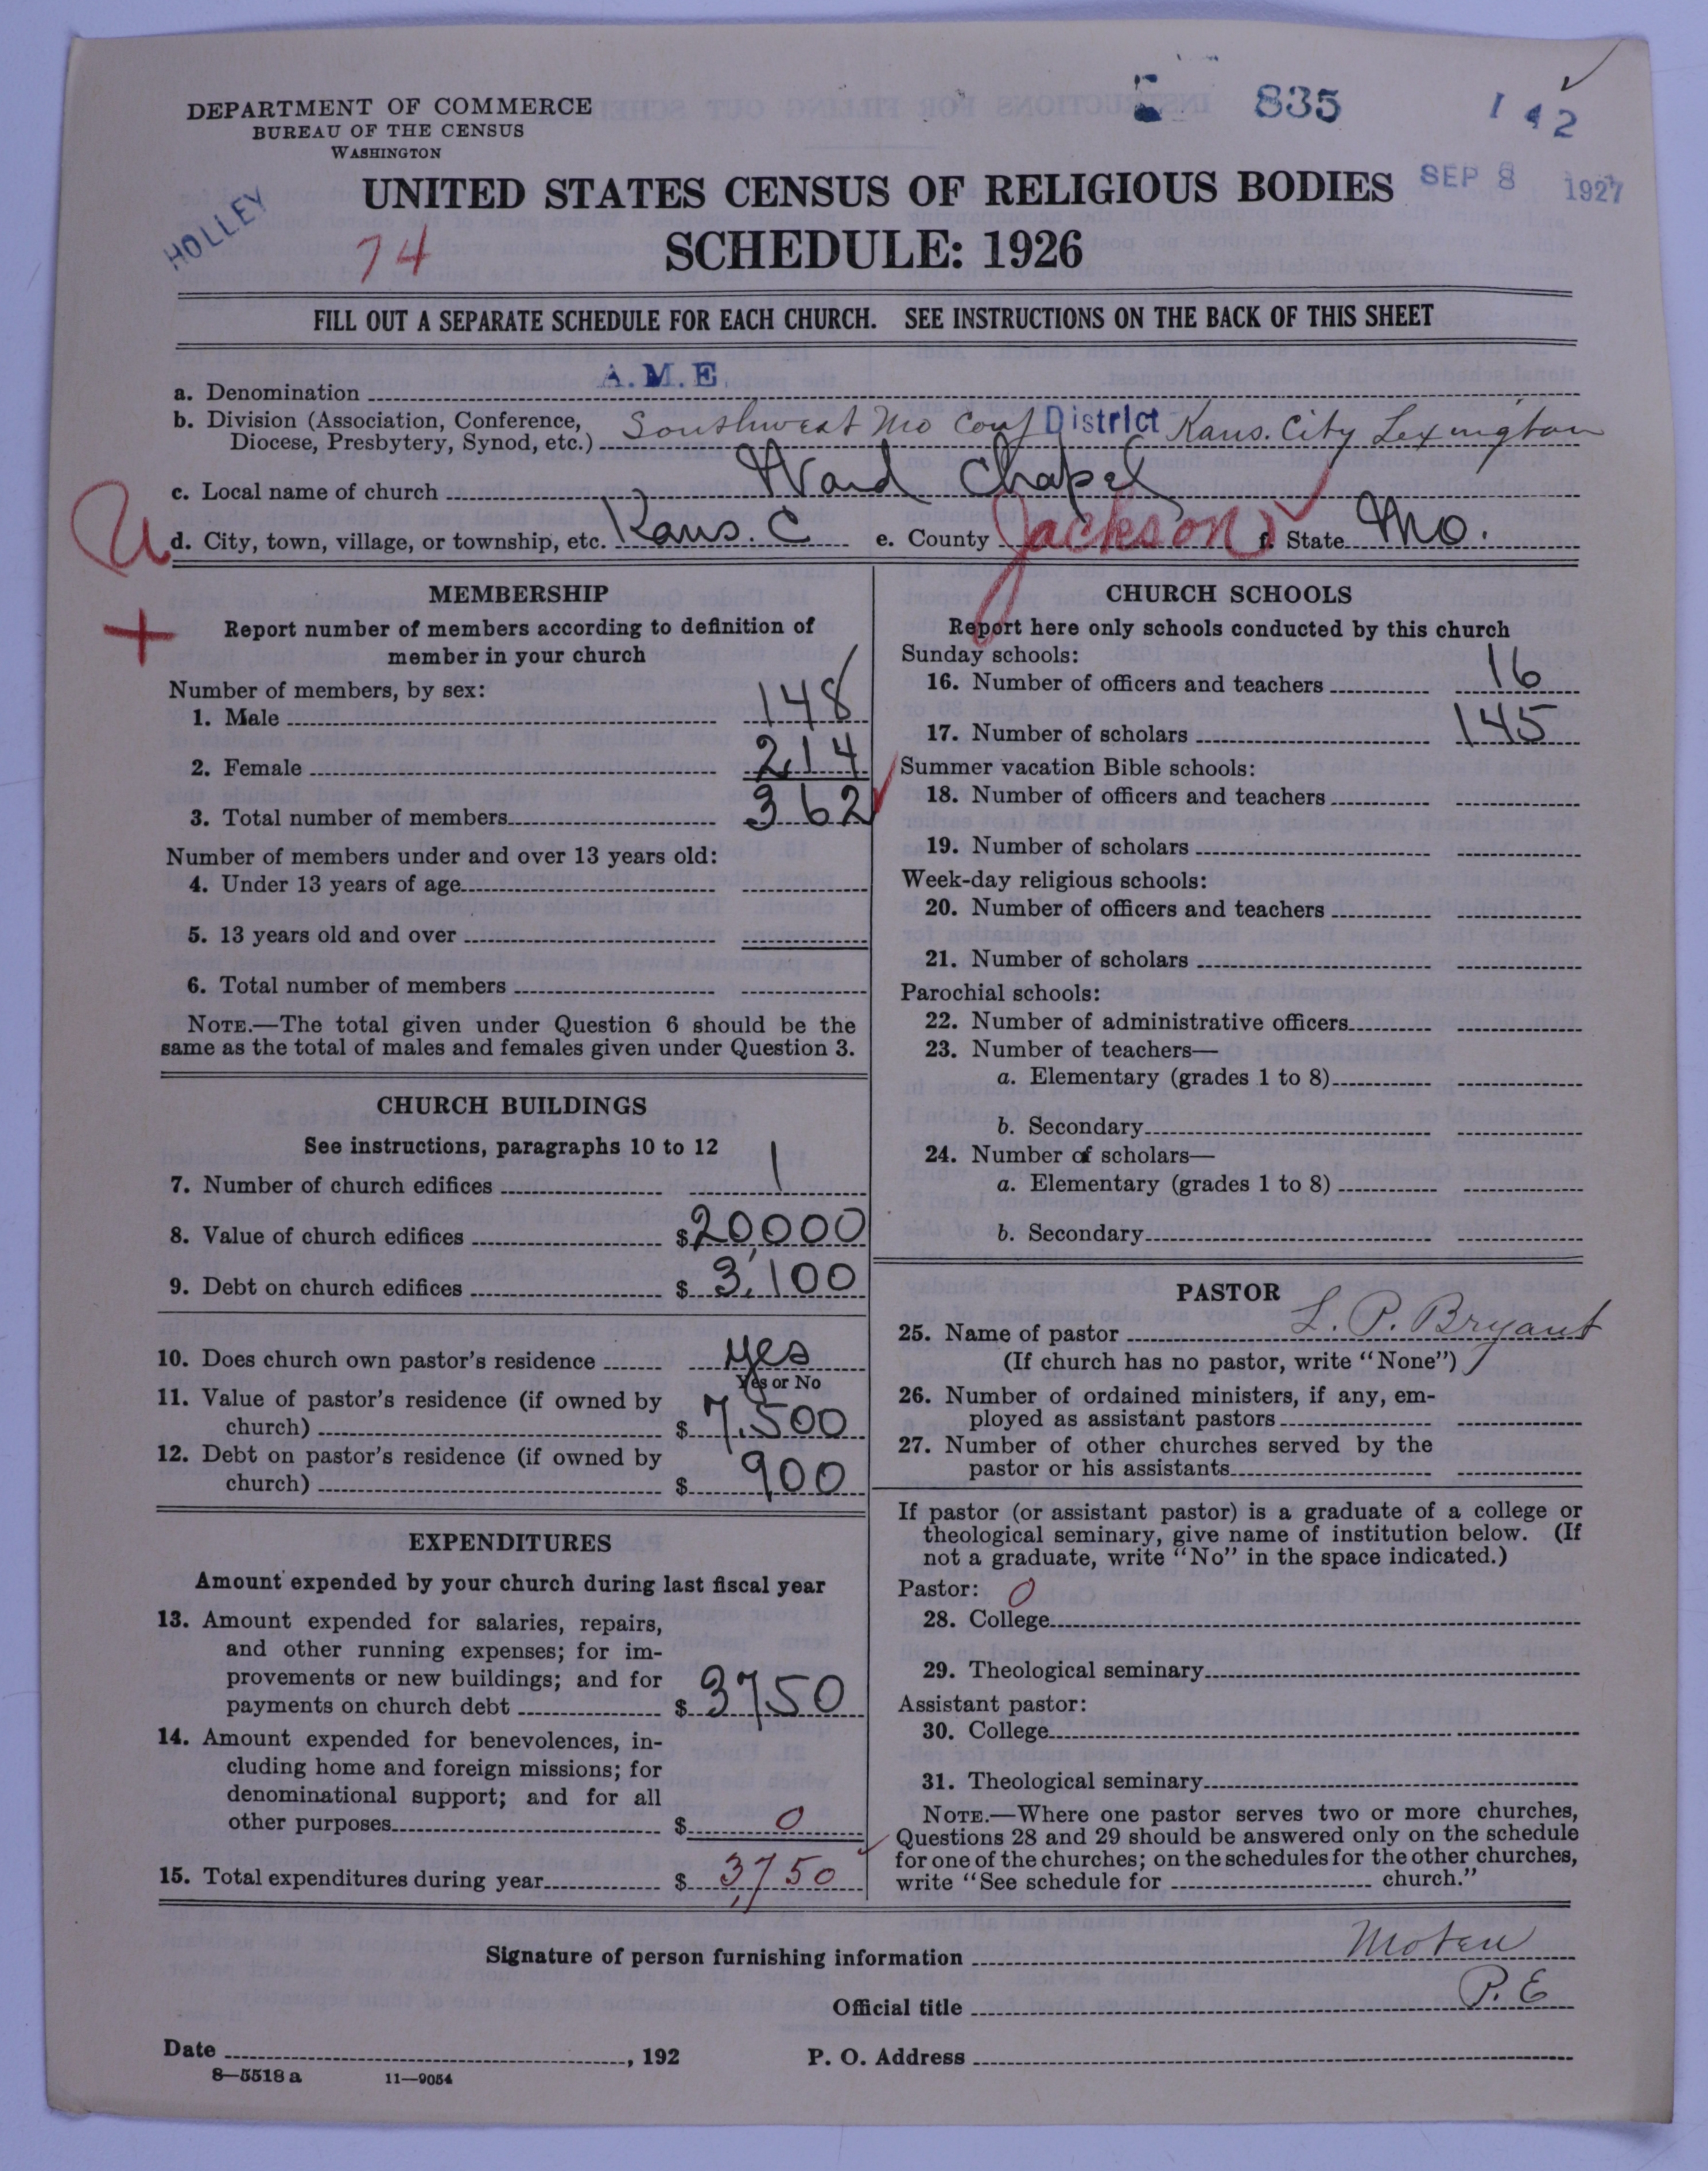 DEPARTMENT OF COMMERCE
BUREAU OF THE CENSUS
WASHINGTON
835
142
UNITED STATES CENSUS OF RELIGIOUS BODIES
SEP 8 1927
HOLLEY
74
SCHEDULE: 1926
FILL OUT A SEPARATE SCHEDULE FOR EACH CHURCH. SEE INSTRUCTIONS ON THE BACK OF THIS SHEET
a. Denomination A.M.E.
b. Division (Association, Conference, Diocese, Presbytery, Synod, etc.) Southwest Mo Conf District Kans. City Lexington
c. Local name of church Ward Chapel
U
d. City, town, village, or township, etc. Kans. C e. County Jackson f. State Mo.
+
MEMBERSHIP
Report number of members according to definition of
member in your church
Number of members, by sex:
1. Male 148
2. Female 214
3. Total number of members 362
Number of members under and over 13 years old:
4. Under 13 years of age
5. 13 years old and over
6. Total number of members
NOTE.—The total given under Question 6 should be the
same as the total of males and females given under Question 3.
CHURCH BUILDINGS
See instructions, paragraphs 10 to 12
7. Number of church edifices 1
8. Value of church edifices $20,000
9. Debt on church edifices $3,100
10. Does church own pastor's residence yes
Yes or No
11. Value of pastor's residence (if owned by
church) $7,500
12. Debt on pastor's residence (if owned by
church) $900
EXPENDITURES
Amount expended by your church during last fiscal year
13. Amount expended for salaries, repairs,
and other running expenses; for im-
provements or new buildings; and for
payments on church debt $3750
14. Amount expended for benevolences, in-
cluding home and foreign missions; for
denominational support; and for all
other purposes $0
15. Total expenditures during year $3,750
CHURCH SCHOOLS
Report here only schools conducted by this church
Sunday schools:
16. Number of officers and teachers 16
17. Number of scholars 145
Summer vacation Bible schools:
18. Number of officers and teachers
19. Number of scholars
Week-day religious schools:
20. Number of officers and teachers
21. Number of scholars
Parochial schools:
22. Number of administrative officers
23. Number of teachers—
a. Elementary (grades 1 to 8)
b. Secondary
24. Number of scholars—
a. Elementary (grades 1 to 8)
b. Secondary
PASTOR
25. Name of pastor L. P. Bryant
(If church has no pastor, write "None")
26. Number of ordained ministers, if any, em-
ployed as assistant pastors
27. Number of other churches served by the
pastor or his assistants
If pastor (or assistant pastor) is a graduate of a college or
theological seminary, give name of institution below. (If
not a graduate, write "No" in the space indicated.)
Pastor: 0
28. College
29. Theological seminary
Assistant pastor:
30. College
31. Theological seminary
NOTE.—Where one pastor serves two or more churches,
Questions 28 and 29 should be answered only on the schedule
for one of the churches; on the schedules for the other churches,
write "See schedule for church."
Signature of person furnishing information Moten
Official title P. E
Date , 192 P. O. Address
8—5518 a 11—9054